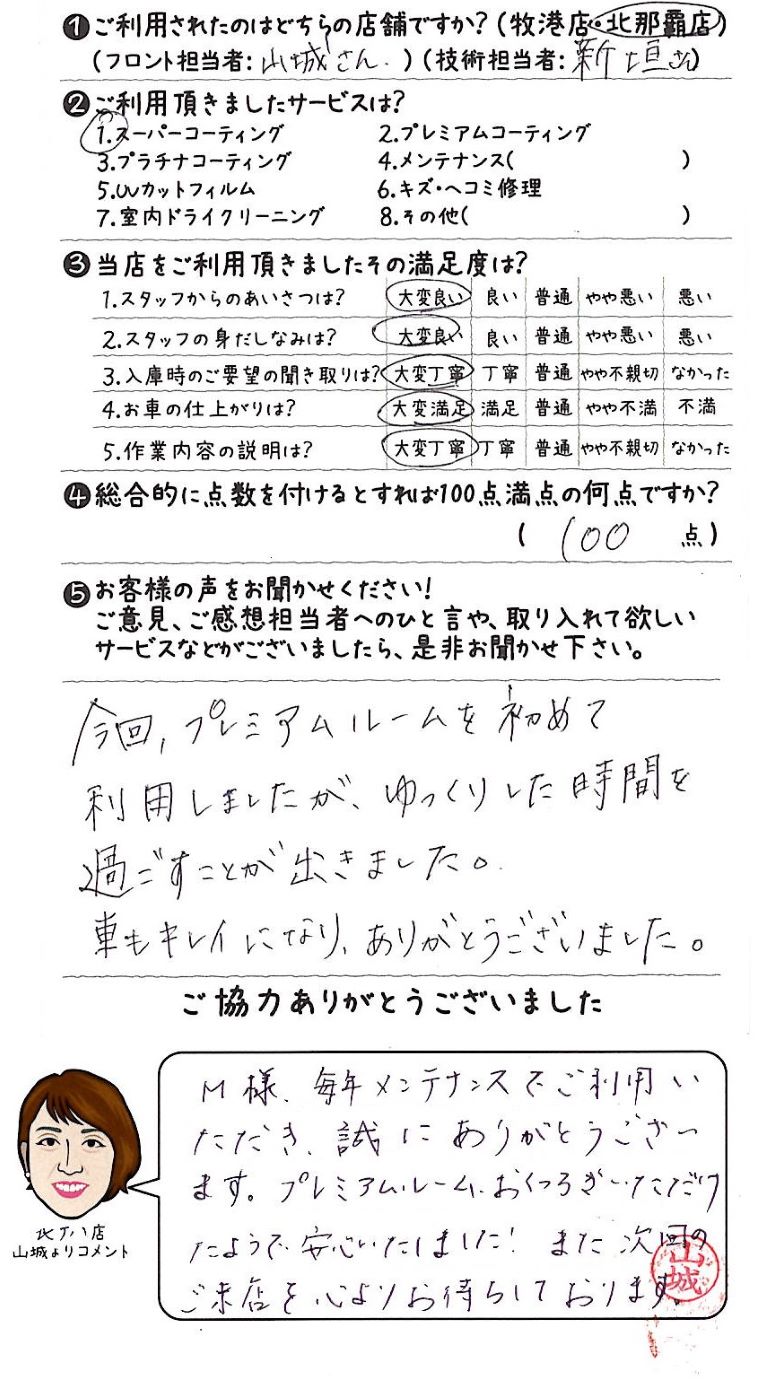 ❶ご利用されたのはどちらの店舗ですか?(牧港店・北那覇店)
(フロント担当者:山城さん.)(技術担当者:新垣さん)
❷ご利用頂きましたサービスは?
1.スーパーコーティング 2.プレミアムコーティング
3.プラチナコーティング 4.メンテナンス( )
5.UVカットフィルム 6.キズ・ヘコミ修理
7.室内ドライクリーニング 8.その他( )
❸当店をご利用頂きましたその満足度は?
1.スタッフからのあいさつは? 大変良い 良い 普通 やや悪い 悪い
2.スタッフの身だしなみは? 大変良い 良い 普通 やや悪い 悪い
3.入庫時のご要望の聞き取りは? 大変丁寧 丁寧 普通 やや不親切 なかった
4.お車の仕上がりは? 大変満足 満足 普通 やや不満 不満
5.作業内容の説明は? 大変丁寧 丁寧 普通 やや不親切 なかった
❹総合的に点数を付けるとすれば100点満点の何点ですか?
( 100 点)
❺お客様の声をお聞かせください!
ご意見、ご感想担当者へのひと言や、取り入れて欲しい
サービスなどがございましたら、是非お聞かせ下さい。
今回,プレミアムルームを初めて
利用しましたが、ゆっくりした時間を
過ごすことが出きました。
車もキレイになり、ありがとうございました。
ご協力ありがとうございました
M様、毎年メンテナンスでご利用い
ただき、誠にありがとうござい
ます。プレミアムルーム、おくつろぎいただけ
たようで安心いたしました!また次回の
ご来店を心よりお待ちしております。
山城
北ナハ店
山城よりコメント